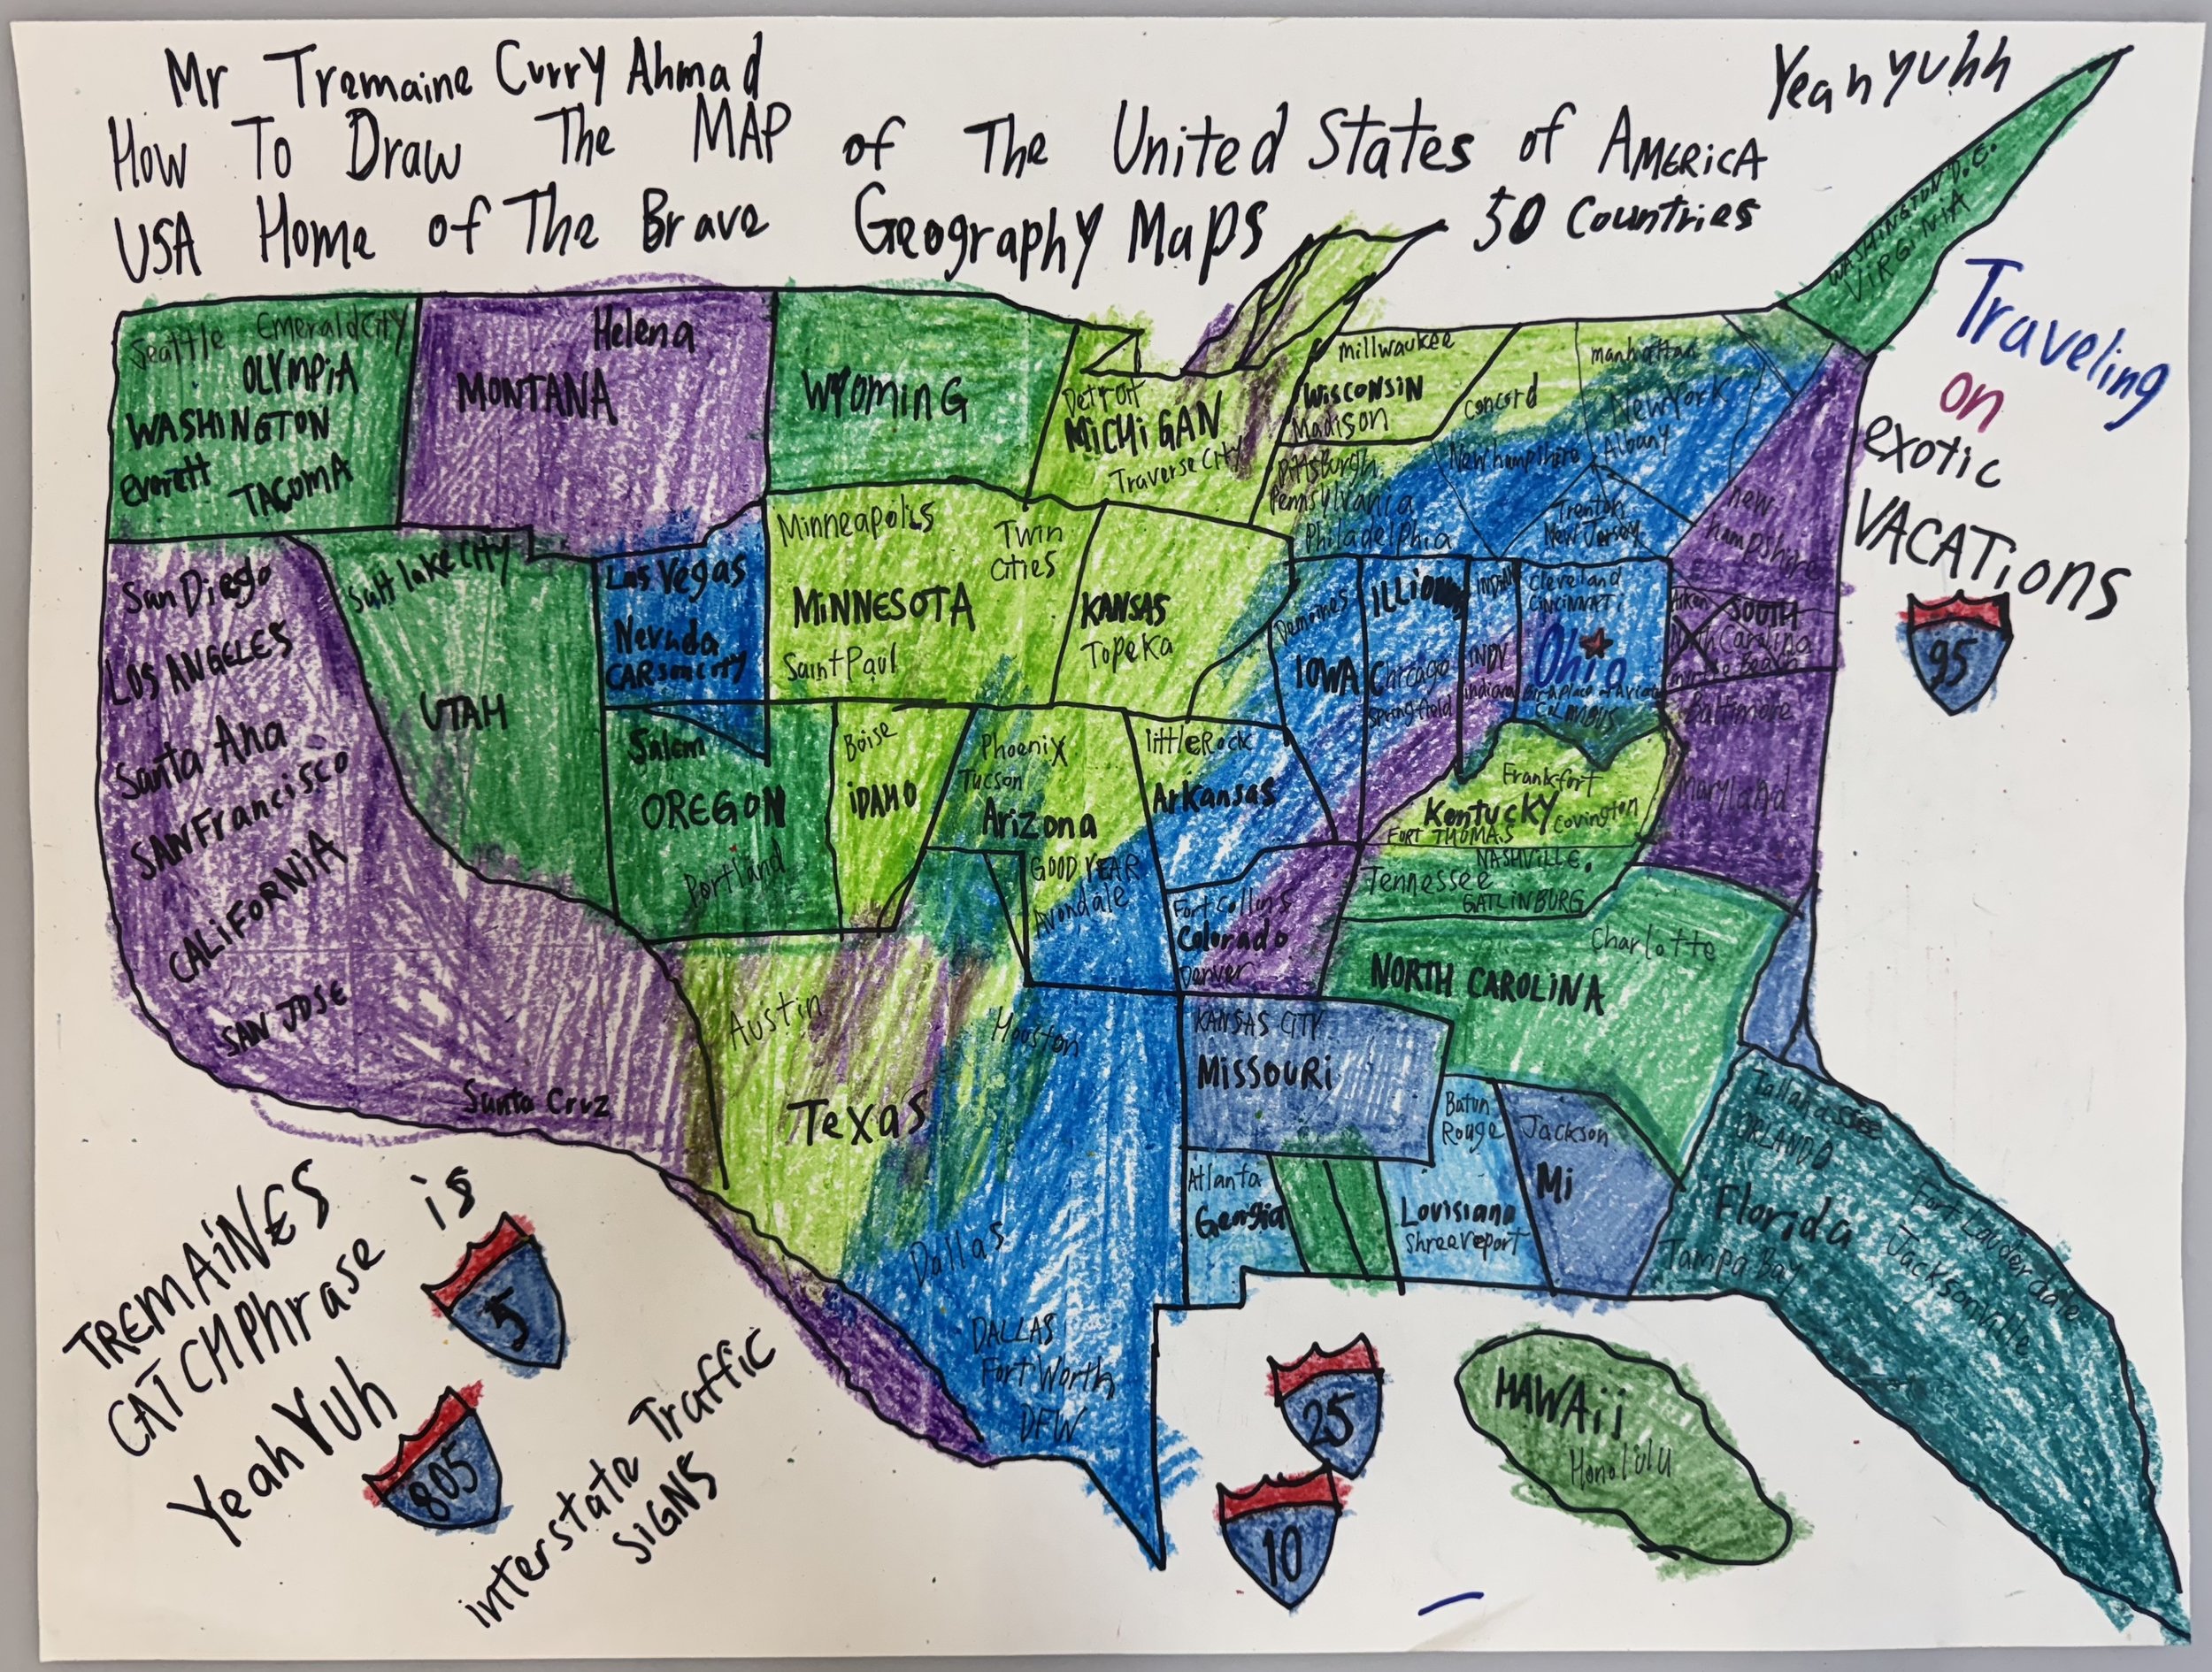 Mr Tremaine Curry Ahmad
How To Draw The MAP of The United States of AMERICA
USA Home of The Brave Geography Maps 50 Countries
Yeah yuhh
WASHINGTON D.C.
VIRGINIA
Traveling
on
exotic
VACATions
95
Seattle Emerald City
OLYMPiA
WASHINGTON
Everett TACOMA
Helena
MONTANA
WYOMING
Detroit
MICHIGAN
Traverse City
Millwaukee
WISCONSIN
Madison
Concord
New hampshire
manhattan
New York
Albany
Pittsburgh
Pennsylvania
Philadelphia
Trenton
New Jersey
new
hampshire
San Diego
LOS ANGELES
Santa Ana
SAN Francisco
CALiFORNiA
SAN JOSE
Santa Cruz
Salt lake City
UTAH
Las Vegas
Nevada
CARson city
Minneapolis Twin
Cities
MINNESOTA
Saint Paul
KANSAS
Topeka
IOWA
ILLiONis
Chicago
Springfield
INDY
indiana
Cleveland
CINCINNATi
Ohio
Birthplace of Aviation
COLUMBUS
Aiken SOUTH
North Carolina
myrtle Beach
Baltimore
Maryland
Salem
OREGON
Portland
Boise
iDAHO
Phoenix
Tucson
Arizona
GOOD YEAR
Avondale
little Rock
Arkansas
Frankfort
Kentucky Covington
FORT THOMAS
NASHVILLE.
Tennessee
GATLINBURG
Fort Collins
Colorado
Denver
Charlotte
NORTH CAROLINA
Austin
Houston
Texas
Dallas
DALLAS
Fort Worth
DFW
KANSAS CITY
MISSOURi
Atlanta
Georgia
Baton
Rouge
Louisiana
Shreeveport
Jackson
Mi
Tallahassee
ORLANDO
Florida
Tampa Bay
Fort Lauderdale
Jacksonville
HAWAii
Honolulu
TREMAiNES
CATCHPhrase is
Yeah YUh
5
805
interstate Traffic
SiGNS
25
10